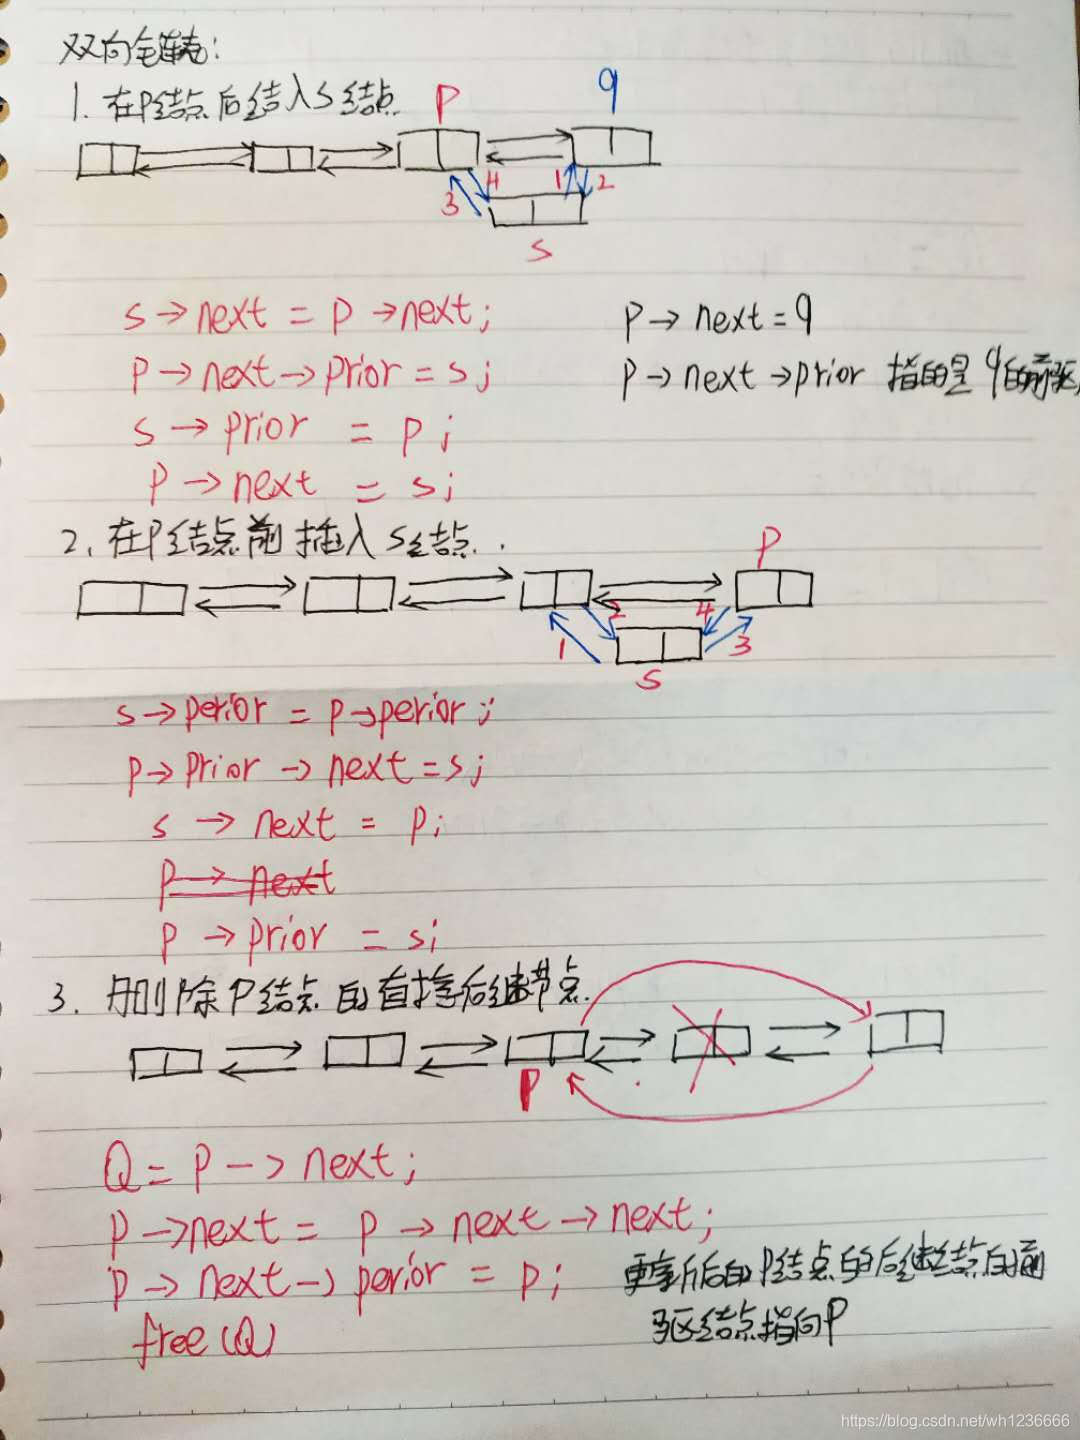 双向链表:
1. 在P结点后结入S结点
P
q
3 4 1 2
S
s→next = p→next;
p→next=q
p→next→prior = s;
p→next→prior 指的是q的前驱
s→prior = p;
p→next = s;
2. 在P结点前插入S结点.
P
1 2 4 3
S
s→perior = p→perior;
p→prior→next=s;
s→next = p;
p→next
p→prior = s;
3. 删除P结点的直接后继节点.
P
Q = p->next;
p→next = p→next→next;
p→next→perior = p;
更新后的P结点的后继结点的前
free(Q)
驱结点指向P
https://blog.csdn.net/wh1236666